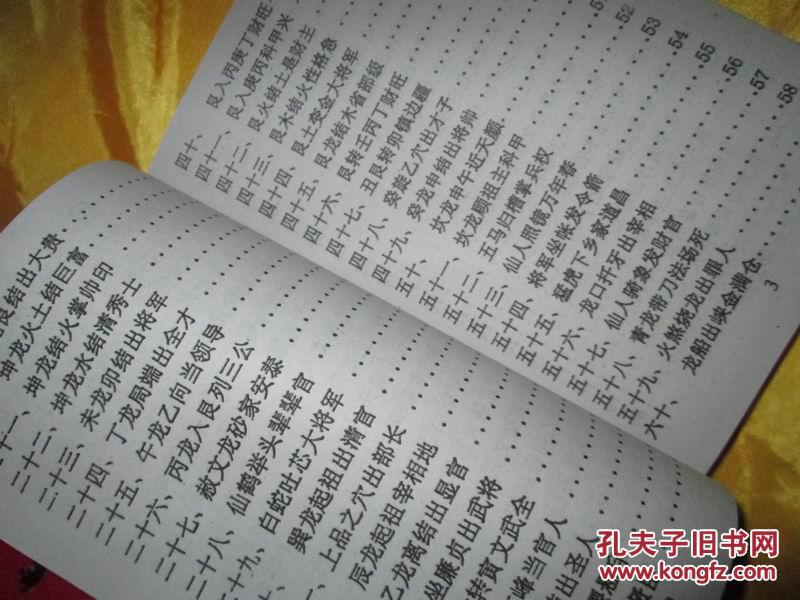 艮结出大贵
坤龙火土结巨富
二十一、坤龙结火掌帅印
二十二、坤龙水结清秀士
二十三、未龙卯结出将军
二十四、丁龙局端出全才
二十五、午龙乙向当领导
二十六、丙龙入艮列三公
二十七、赦文龙砂家安泰
二十八、仙鹤举头辈辈官
二十九、白蛇吐芯大将军
巽龙起祖出清官
上品之穴出部长
辰龙起祖宰相地
乙龙离结出显官
坐廉贞出武将
转寅文武全
峰当官人
结出圣人
四十、艮入丙庚丁财旺
四十一、艮入庚丙科甲兴
四十二、艮火结土是财主
四十三、艮木结火性格急
四十四、艮土变金大将军
四十五、艮龙结木省部级
四十六、艮转壬丙丁财旺
四十七、丑艮转卯镇边疆
四十八、癸旋乙穴出才子
四十九、癸龙申结出将帅
五十、坎龙甲午近天颜
五十一、坎龙顾祖主科甲
五十二、五马归槽掌兵权
五十三、仙人照镜万年春
五十四、将军坐帐发令箭
五十五、猛虎下乡家道昌
五十六、龙口扦牙出宰相
五十七、仙人骑象发财官
五十八、青龙带刀法场死
五十九、火煞烧龙出罪人
六十、龙船出峡金满仓
52
53
54
55
56
57
58
3
孔夫子旧书网
www.kongfz.com